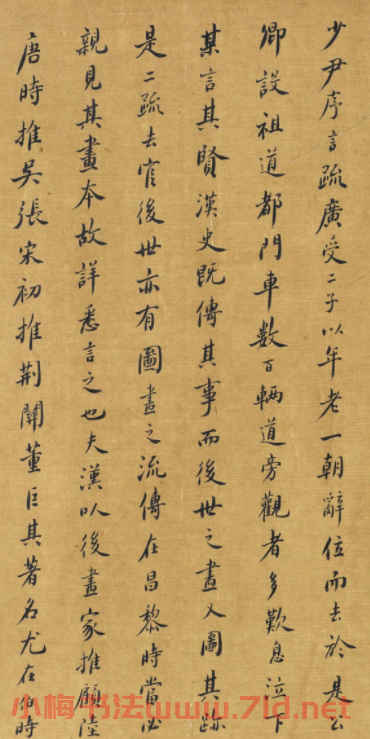 少尹序言疏廣受二子以年老一朝辭位而去於是公
卿設祖道都門車數百輌道旁觀者多歎息泣下
某言其賢漢史既傳其事而後世之畫人圖其跡
是二疏去官後世亦有圖畫之流傳在昌黎時當必
親見其畫本故詳悉言之也夫漢以後畫家推顧陸
唐時推吳張宋初推荆關董巨其著名尤在伯時
小梅书法www.7ld.net